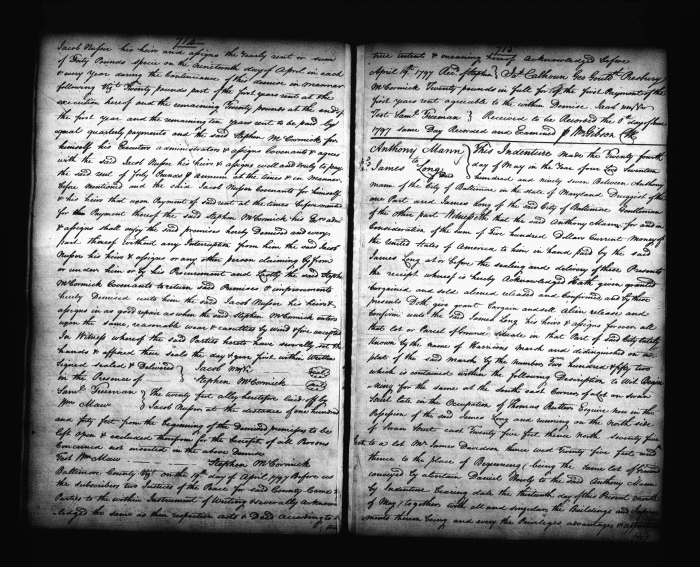 712
Jacob Nusser his heirs and assigns the yearly rent or sum
of Forty Pounds specie on the nineteenth day of April in each
& every Year during the Continuance of this demise in manner
following Vizt Twenty pounds part of the first years rent at the
execution hereof and the remaining Twenty pounds at the end of
the first year and the remaining ten years rent to be paid by
equal quarterly payments and the said Stephen McCormick for
himself his Executors administrators & assigns Covenants & agrees
with the said Jacob Nusser his heirs & assigns well and truly to pay
the said rent of Forty Pounds annum at the times & in manner
before mentioned and the said Jacob Nusser Covenants for himself
& his heirs that upon Payment of said rent at the times beforementd
for the Payment thereof the said Stephen McCormick his Exrs adm
& assigns shall enjoy the said premises hereby Demised and every
part thereof without any Interruption from him the said Jacob
Nusser his heirs & assigns or any other person claiming by from
or under him or by his Procurement and Lastly the said Stephen
McCormick Covenants to return said Premises & improvements
hereby Demised unto him the said Jacob Nusser his heirs &
assigns in as good repair as when the said Stephen McCormick enters
upon the same, reasonable wear & casualties by wind & fire excepted
In Witness whereof the said Parties hereto have severally set their
hands & affixed their seals the day & year first within Written
Signed sealed & Delivered Jacob
in the Presence of Stephen McCormick
Saml Freeman The twenty feet alley heretofore laid off by
Wm Maw Jacob Nusser at the distance of one hundred
and forty feet from the beginning of the demised premises to be
left open & excluded therefrom for the benefit of all Persons
Concerned not inserted in the above Demise
Test Wm Maw Stephen McCormick
Baltimore County Vizt on the 19th day of April 1797 Before us
the subscribers two Justices of the Peace for said County Came the
Parties to the within Instrument of Writing & severally acknow
ledged the same as their respective acts & Deed according to the
713
true intent & meaning hereof Acknowledged before
April 19th 1797 Recd of Stephen Jas Calhoun Geo Gouldh Presbury
McCormick Twenty pounds in full for half the first Payment of the
first years rent agreeable to the within Demise Jacob
Test Saml Freeman Received to be Recorded the day of June
1797 same Day Recorded and Examined Wm Gibson Clk
Anthony Mann This Indenture Made the Twenty fourth
to day of May in the Year of our Lord Seventeen
James Long hundred and ninety seven Between Anthony
Mann of the City of Baltimore in the state of Maryland Druggist of the
one Part and James Long of the said City of Baltimore Gentleman
of the other part Witnesseth that the said Anthony Mann for and in
Consideration of the sum of Five hundred Dollars Current Money of
the United States of America to him in hand paid by the said
James Long at or before the sealing and delivery of these Presents
the receipt whereof is hereby Acknowledged Hath given granted
bargained and sold aliened released and Confirmed and by these
presents Doth give grant bargain and sell alien release and
Confirm unto the said James Long his heirs & assigns for ever all
that lot or Parcel of Ground situate in that Part of said City lately
known by the name of Harrisons Marsh and distinguished on the
plat of the said Marsh by the number Two hundred & fifty two
which is contained within the following Description to Wit Begin
ning for the same at the south east Corner of a Lot on Swan
Street late in the Occupation of Thomas Rutter Esquire now in the
Possession of the said James Long and running on the North side
of Swan Street east Twenty five feet thence North seventy five
feet to a lot Mr James Davidson thence west Twenty five feet and
thence to the place of Beginning (being the same lot of Ground
conveyed by a certain Daniel to the said Anthony Mann
by Indenture bearing date the thirteenth day of this Present month
of May) together with all and singular the Buildings and Improve
ments thereon being and every the Privileges advantages &